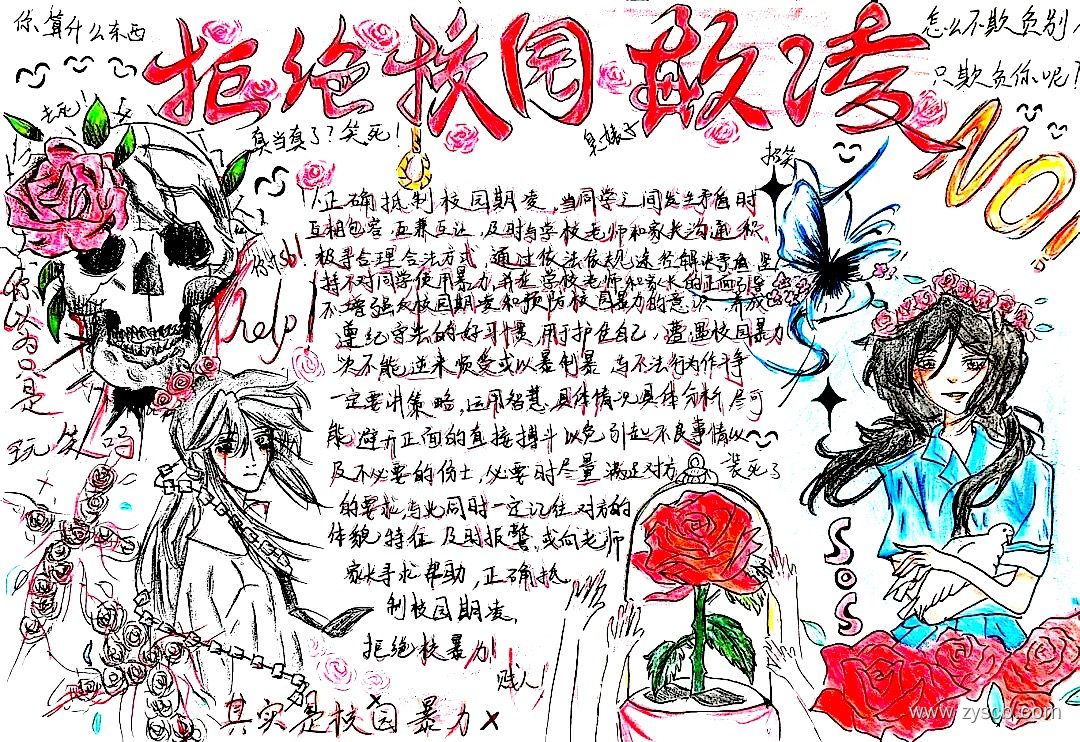 你算什么东西
拒绝校园欺凌
怎么不欺负别人
只欺负你呢?
去死!
真当真了?笑死!
臭婊子
搞笑
NO!
1.正确抵制校园期凌,当同学之间发生矛盾时
互相包容,互兼互让,及时与学校老师和家长沟通,积
极寻合理合法方式,通过依法依规途径解决矛盾,坚
持不对同学使用暴力,并在学校老师和家长的正面引导
不增强反校园期凌和预防校园暴力的意识,养成
遵纪守法的好习惯,用于护住自己,遭遇校园暴力
决不能逆来顺受或以暴制暴,与不法行为作斗争
一定要讲策略,运用智慧,具体情况具体分析,尽可
能避开正面的直接搏斗,以免引起不良事情以
及不必要的伤士,必要时尽量满足对方
的要求,与此同时一定记住对方的
体貌特征,及时报警,或向老师
家长寻求帮助,正确抵
制校园期凌,
拒绝校暴力!
help!
你以为只是
玩笑吗
装死了
SOS
贱人!
其实是校园暴力
www.zyscb.com